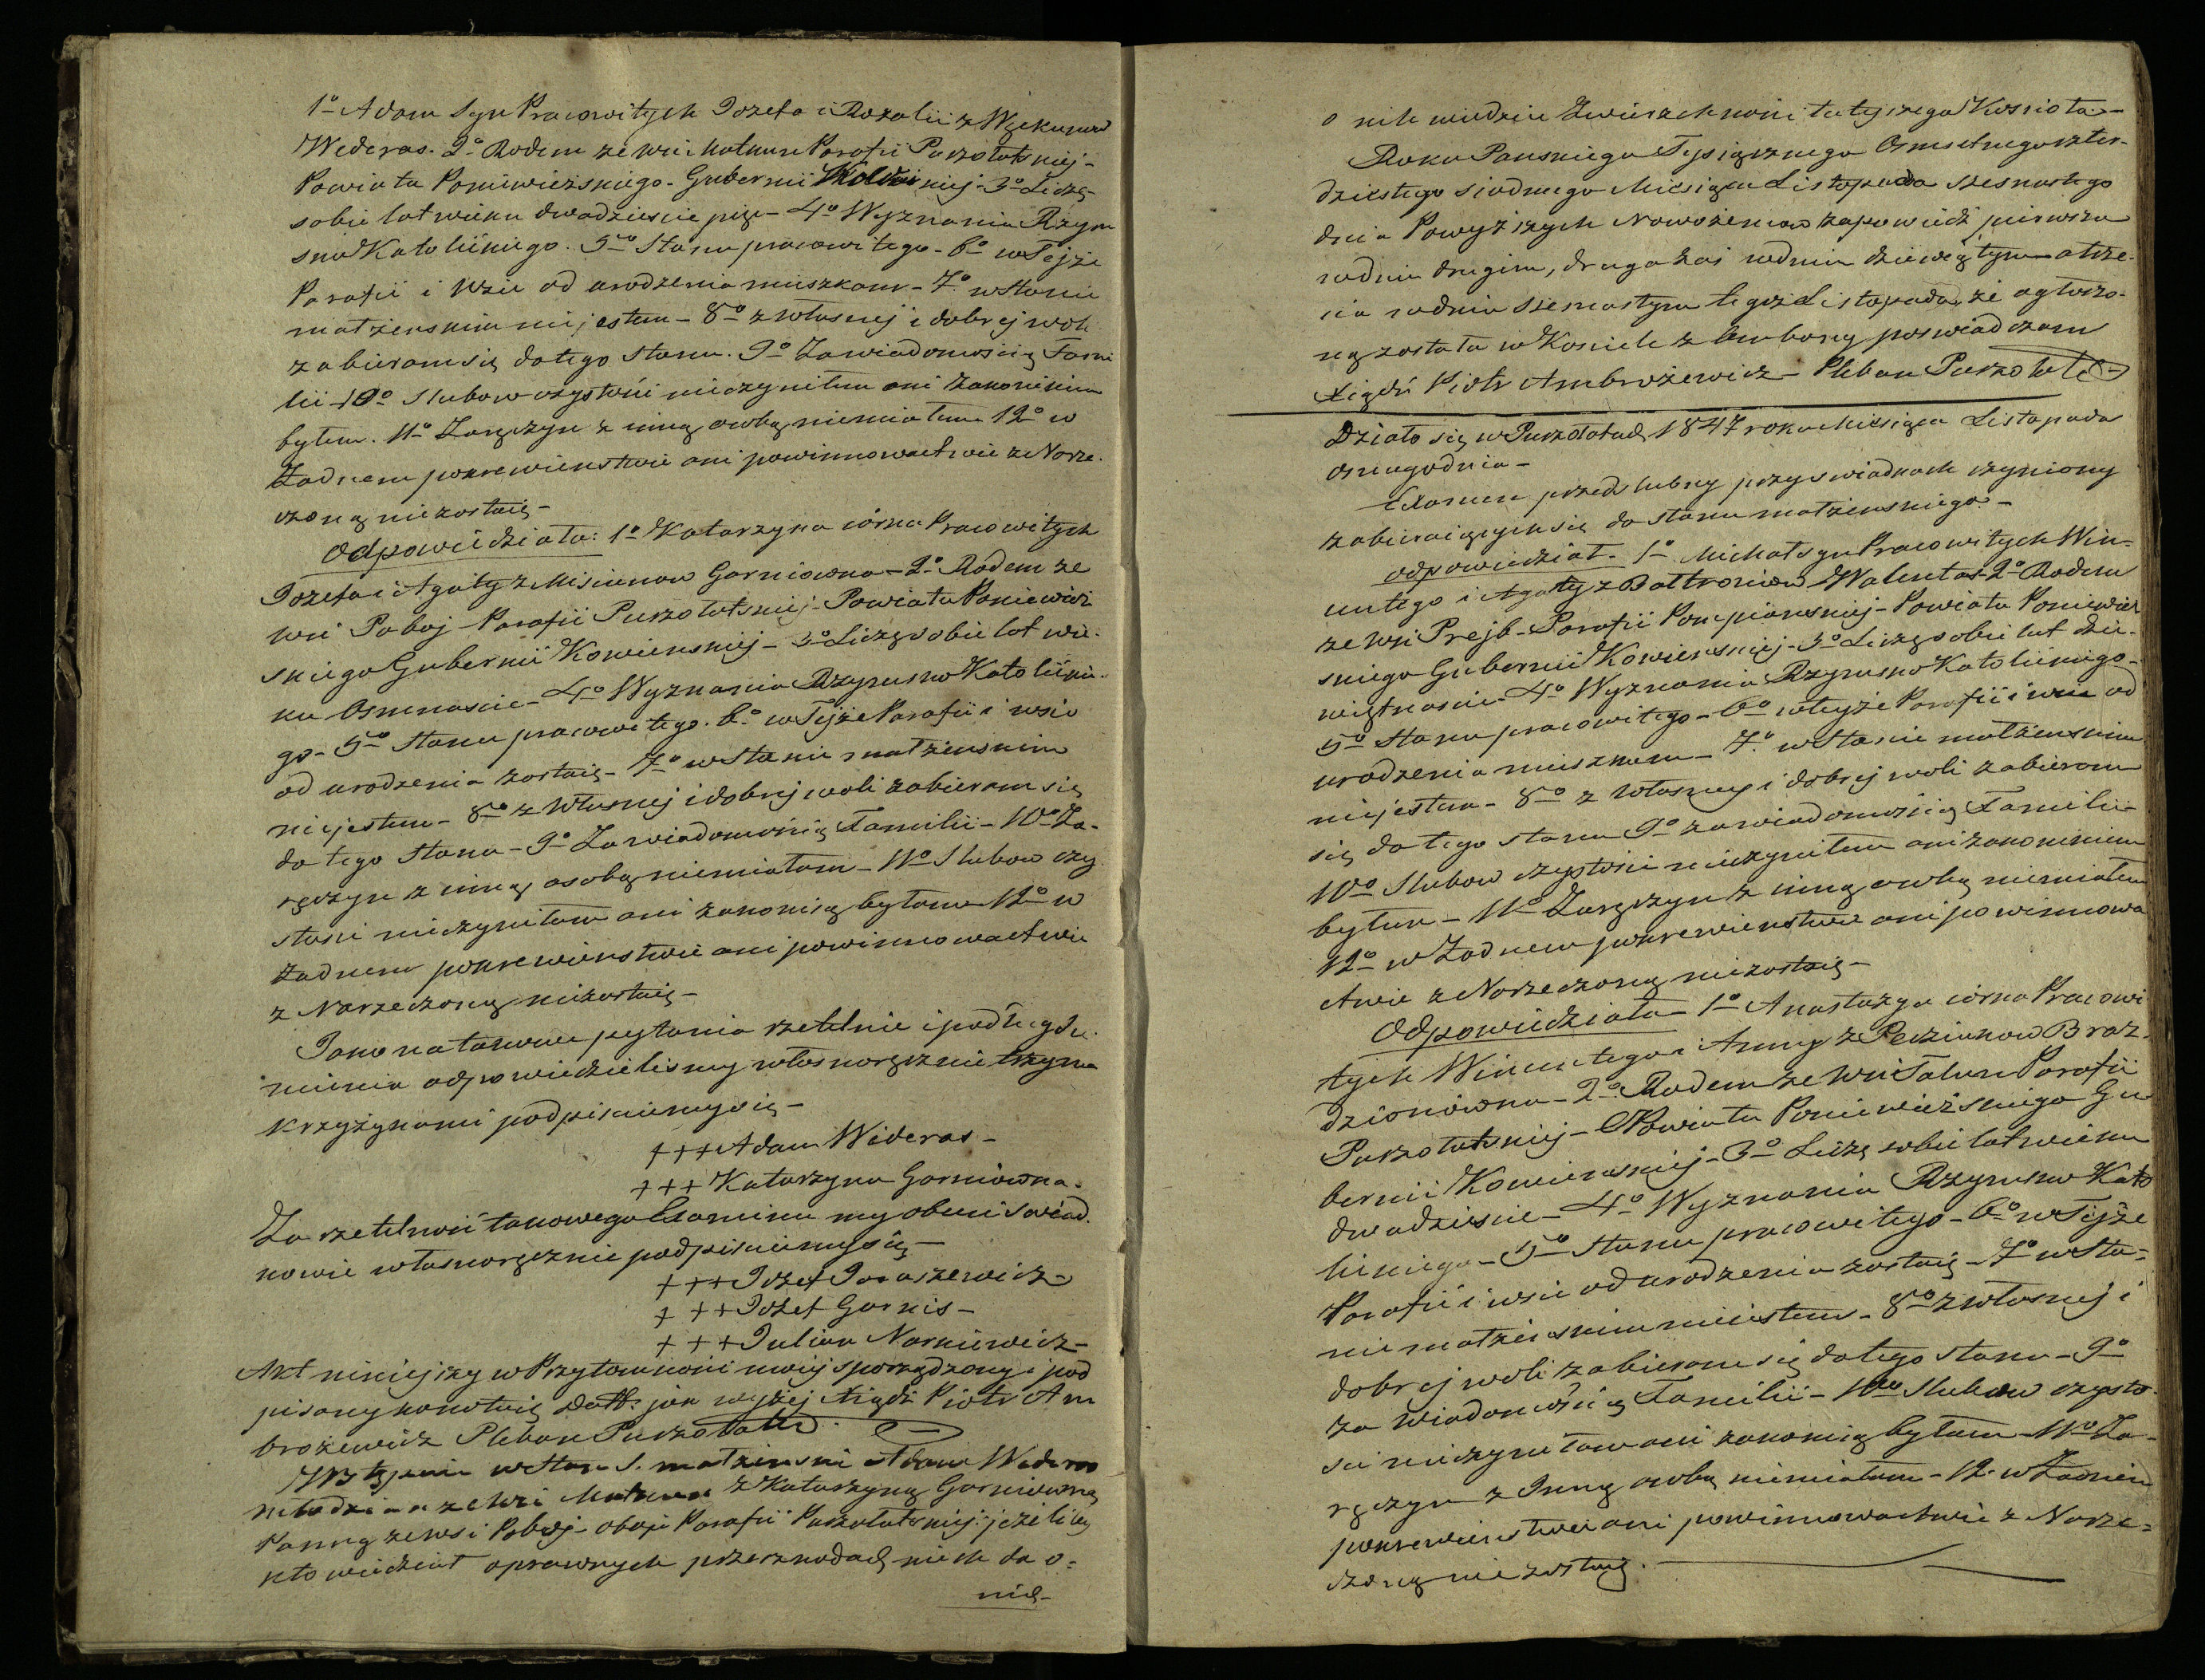 1º Adam Syn Pracowitych Jozefa i Rozalii z
Wederas. 2º Rodem ze wsi Parafii Puszołatskiej-
Powiatu Poniewieżskiego. Gubernii 3º Liczę-
sobie lat wieku dwadziescie pięc- 4º Wyznania Rzym
sko Katolickiego. 5to Stanu pracowitego- 6º w Tejże
Parafii i Wsie od urodzenia mieszkam- 7º w Stanie
małżenskim niejestem- 8º z Własnej i dobrej woli
zabieram się do tego Stanu. 9º Za wiadomoscią Fami
lii- 10º Slubow czystosci nieczyniłem ani Zakonikiem
byłem. 11º Zaręczyn z inną osobą niemiałem 12º w
Żadnem pokrewienstwie ani powinnowactwie z Narze-
czoną niezostaię-
Odpowiedziała: 1º Katarzyna córka Pracowitych
Jozefa i Agaty z Misiunow Garniowna- 2º Rodem ze
wsi Poboj Parafii Puszołatskiej- Powiatu Poniewież
skiego Gubernii Kowienskiej- 3º Liczę sobie lat wie-
ku Osmnascie- 4º Wyznania Rzymsko Katolickie-
go- 5to Stanu pracowitego. 6º w Tejże Parafii i wsie
od urodzenia zostaię- 7º w Stanie małżenskim
niejestem- 8º z Własnej i dobrej woli zabieram się
do tego Stanu- 9º Za wiadomoscią Familii- 10º Za-
ręczyn z inną osobą niemiałam- 11º Slubow czy
stosci nieczyniłam ani zakonicą byłam 12º w
Żadnem pokrewienstwie ani powinnowactwie
z Narzeczonym niezostaię-
Jako na takowe pytania rzetelnie i podług su-
mienia odpowiedzielismy własnoręcznie trzyma
krzyżykami podpisuiemy się-
+++ Adam Wideras-
+++ Katarzyna Garniowna.
Za rzetelność takowego Examinu my obecni Swiad-
kowie własnoręcznie podpisuiemy się-
+++ Jozef Juraszewicz-
+++ Jozef Garnis-
+++ Julian Narkiewicz-
Akt niniejszy w Przytomnosci mojej sporządzony i pod
pisany konotuię Datt: jak wyżej Xiądz Piotr Am
brożewicz Pleban Puszołatt
Wstępuie w Stan S. małżenski Adam Wederas
młodzian ze Wsi z Katarzyną Garniowną
Panną ze wsi Poboj- oboje Parafii Puszołatskiej: jeżeliby
kto wiedział o prawnych przeszkodach niech da o-
nich-
o nich wiedzieć Zwierzchnosci tutejszego Koscioła-
Roku Panskiego Tysiącznego Osmsetnego czter-
dziestego siodmego Miesiąca Listopada szesnastego
dnia Powyższych Nowożencow zapowiedź pierwsza
w dniu drugim, druga zaś w dniu dziewiątym a trze-
cia w dniu szesnastym tegoż Listopada, że ogłoszo-
ną została w Kosciele z Ambony poswiadczam
Xiądz Piotr Ambrożewicz- Pleban Puszołatt
Działo się w Puszołatach 1847 roku Miesiąca Listopada
osmego dnia-
Examen przedslubny przy swiadkach czyniony
zabieraiących się do stanu małżenskiego-
odpowiedział- 1º Michał syn Pracowitych Win-
centego i Agaty z Bałtroniow Walentas- 2º Rodem
ze wsi Prejb- Parafii Pompianskiej- Powiatu Poniewież
skiego Gubernii Kowienskiej- 3º Liczę sobie lat dzie-
więtnascie- 4º Wyznania Rzymsko Katolickiego-
5º Stanu pracowitego- 6º w tejże Parafii i wsie od
urodzenia mieszkam- 7º w Stanie małżenskim
niejestem- 8º z własnej i dobrej woli zabieram
się do tego stanu 9º za wiadomoscią Familii-
10º Slubow czystosci nieczyniłem ani zakonnikiem
byłem- 11º Zaręczyn z inną osobą niemiałem
12º w Żadnem pokrewienstwie ani powinnowa
ctwie z Narzeczoną niezostaię-
Odpowiedziała- 1º Anastazya córka Pracowi
tych Wincentego i Anny z Pedziukow Braz-
dzionówna- 2º Rodem ze Wsi Talun Parafii
Puszołatskiej- Powiatu Poniewieżskiego Gu
bernii Kowienskiej- 3º Liczę sobie lat wieku
dwadziescie- 4º Wyznania Rzymsko Kato
lickiego- 5to Stanu pracowitego- 6º w Tejże
Parafii i wsie od urodzenia zostaię- 7º w Sta-
nie małżenskim niejestem- 8º z własnej i
dobrej woli zabieram się do tego stanu- 9º
za wiadomoscią Familii- 10º Slubow czysto-
sci nieczyniłam ani zakonicą byłam- 11º Za-
ręczyn z Inną osobą niemiałam- 12º w Żadnem
pokrewienstwie ani powinnowactwie z Narze-
czoną niezostaię.